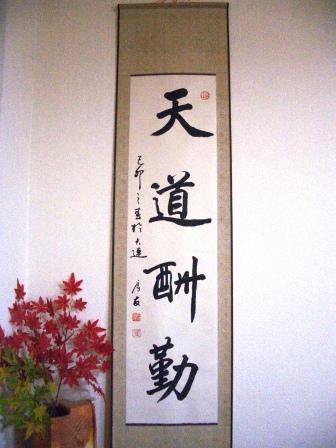 天道酬勤
己卯之春於大連